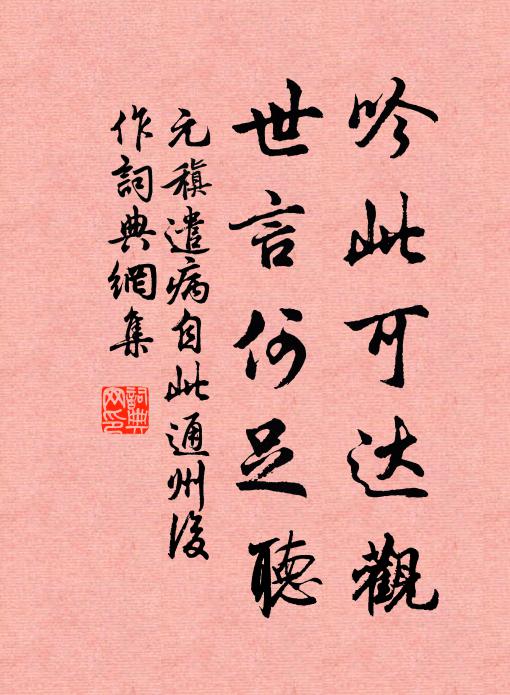 吟此可达觀
世言何足聽
元稹遣病自此通州後
作詞典網集
詞典
网印